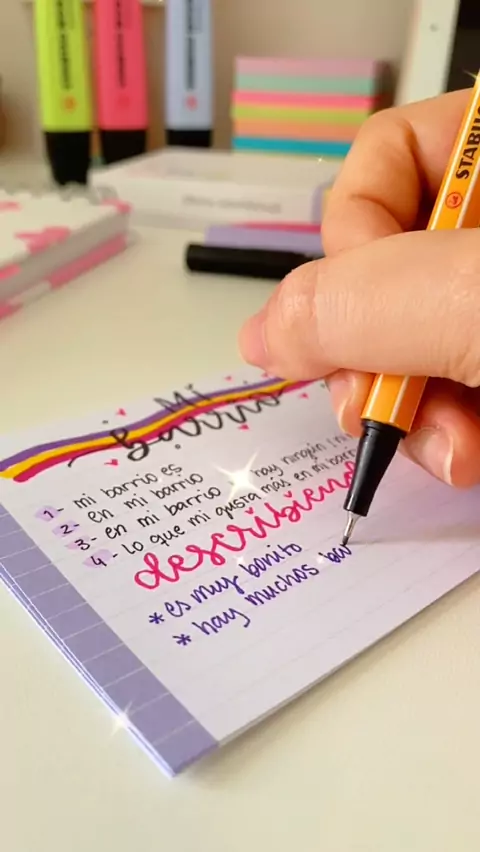 STABILO
Mi
Barrio
1- mi barrio es
2- en mi barrio hay ningún
3- en mi barrio
4- lo que mi gusta más en mi barrio
describiend
* es muy bonito
* hay muchos